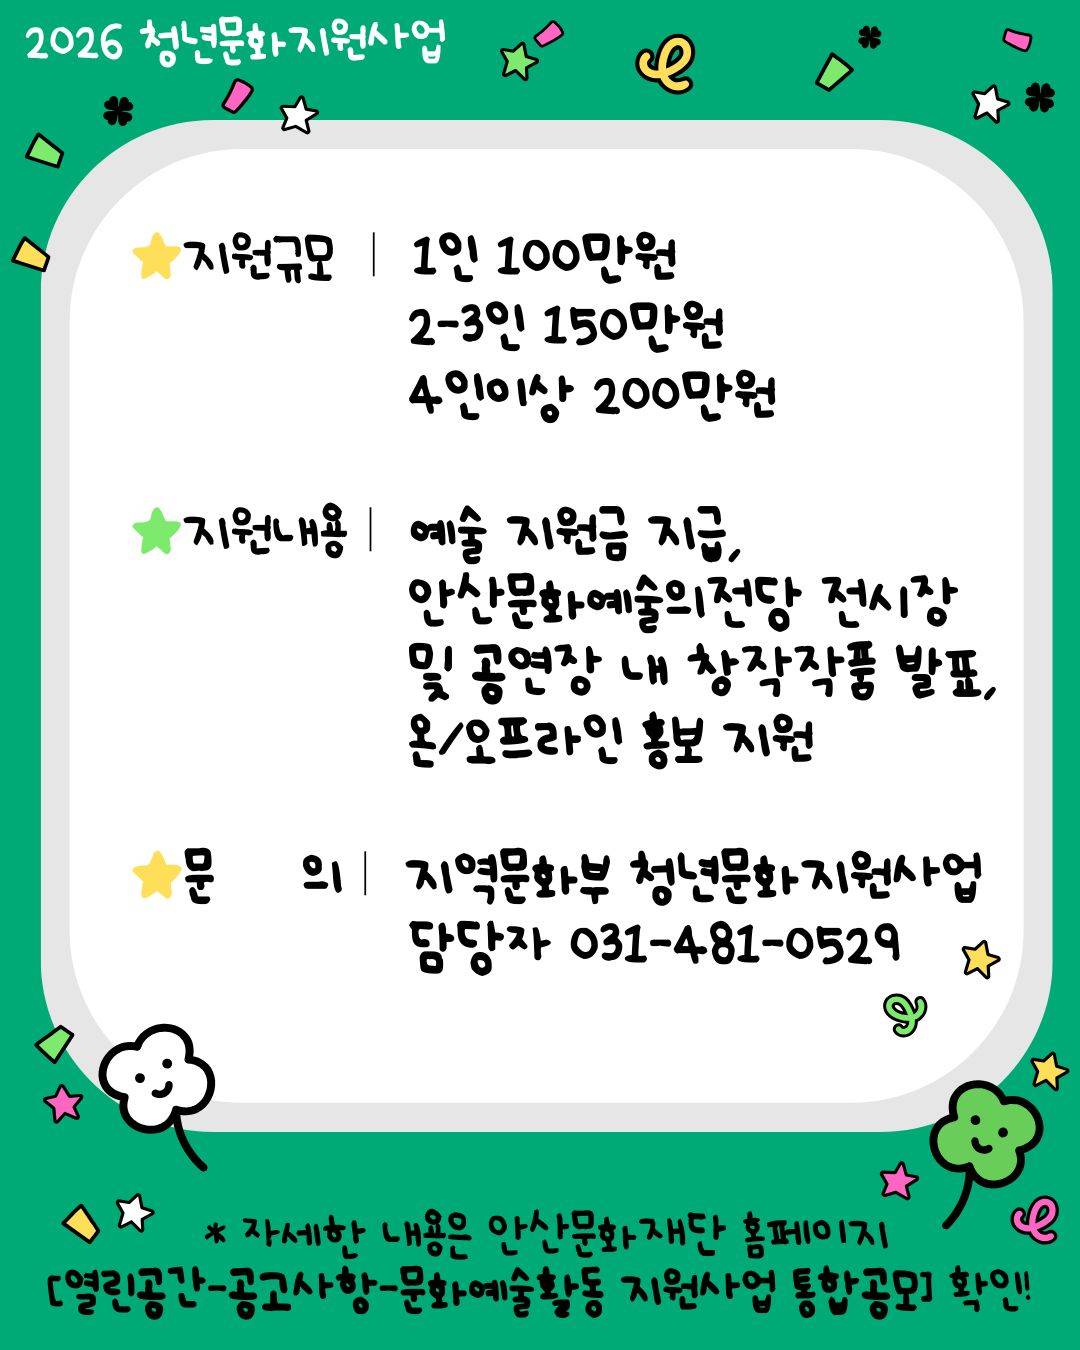 2026 청년문화지원사업
지원규모 | 1인 100만원
2-3인 150만원
4인이상 200만원
지원내용 | 예술 지원금 지급,
안산문화예술의전당 전시장
및 공연장 내 창작작품 발표,
온/오프라인 홍보 지원
문 의 | 지역문화부 청년문화지원사업
담당자 031-481-0529
* 자세한 내용은 안산문화재단 홈페이지
[열린공간-공고사항-문화예술활동 지원사업 통합공모] 확인!